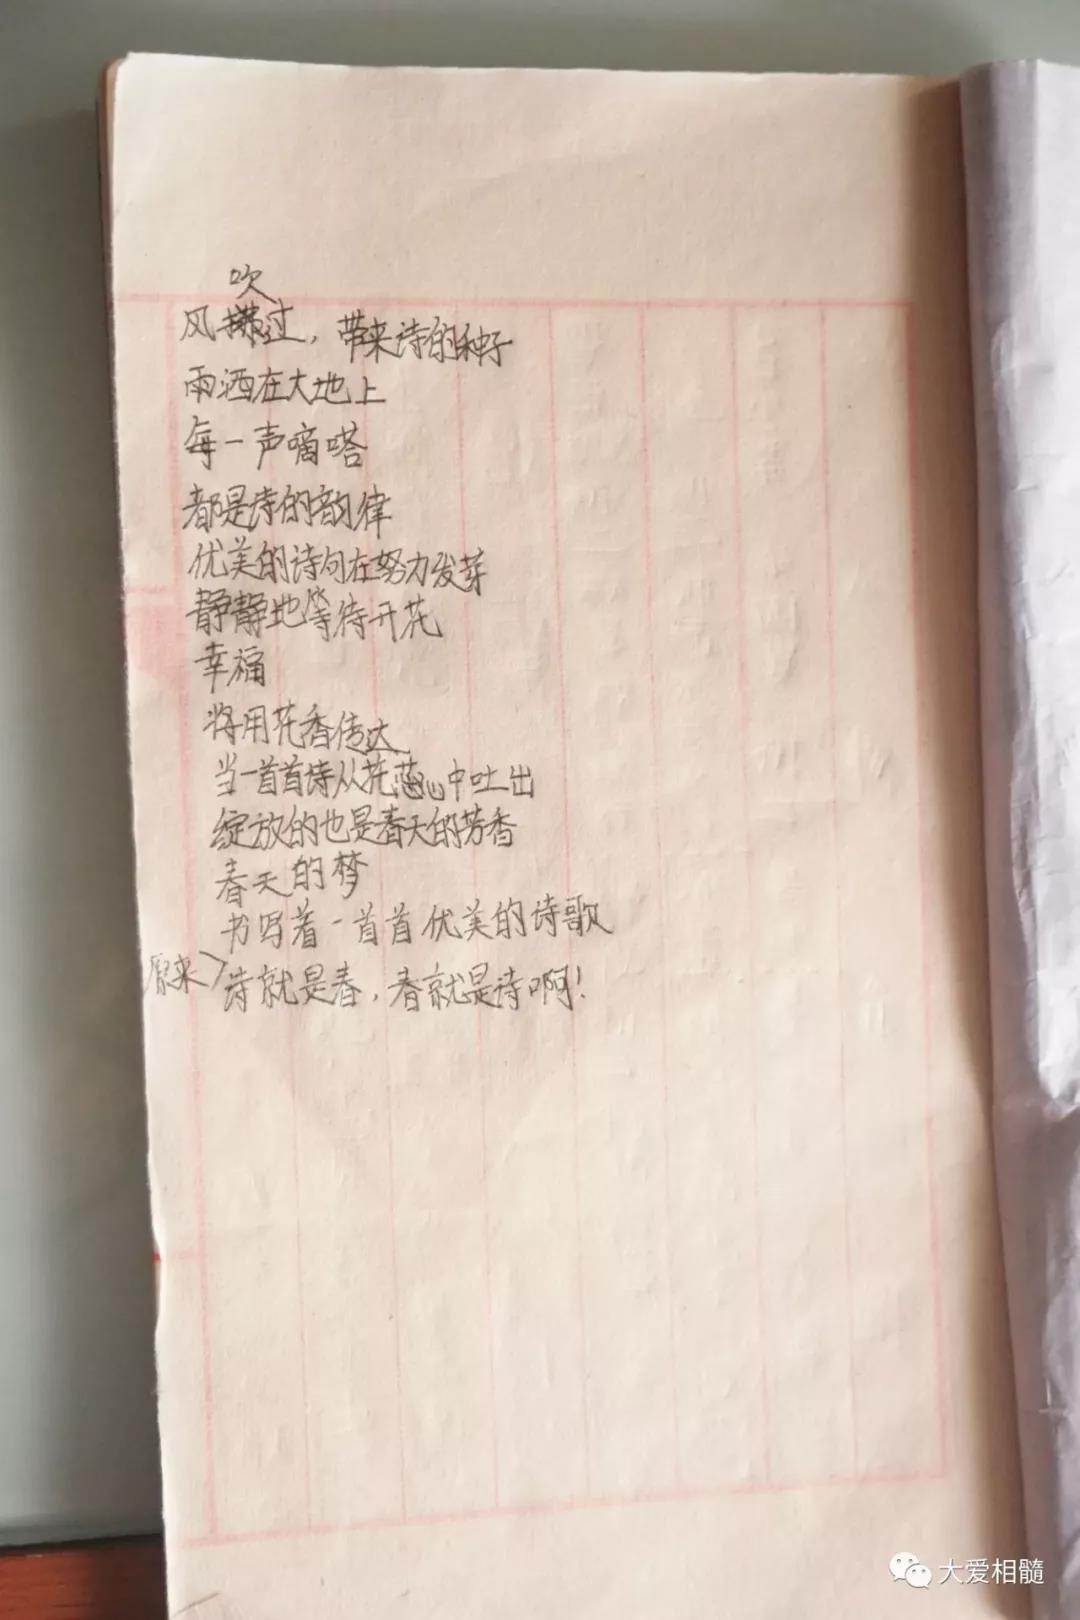 吹
风拂过，带来诗的种子
雨洒在大地上
每一声嘀嗒
都是诗的韵律
优美的诗句在努力发芽
静静地等待开花
幸福
将用花香传达
当一首首诗从花蕊心中吐出
绽放的也是春天的芳香
春天的梦
书写着一首首优美的诗歌
原来
诗就是春，春就是诗啊！
大爱相髓